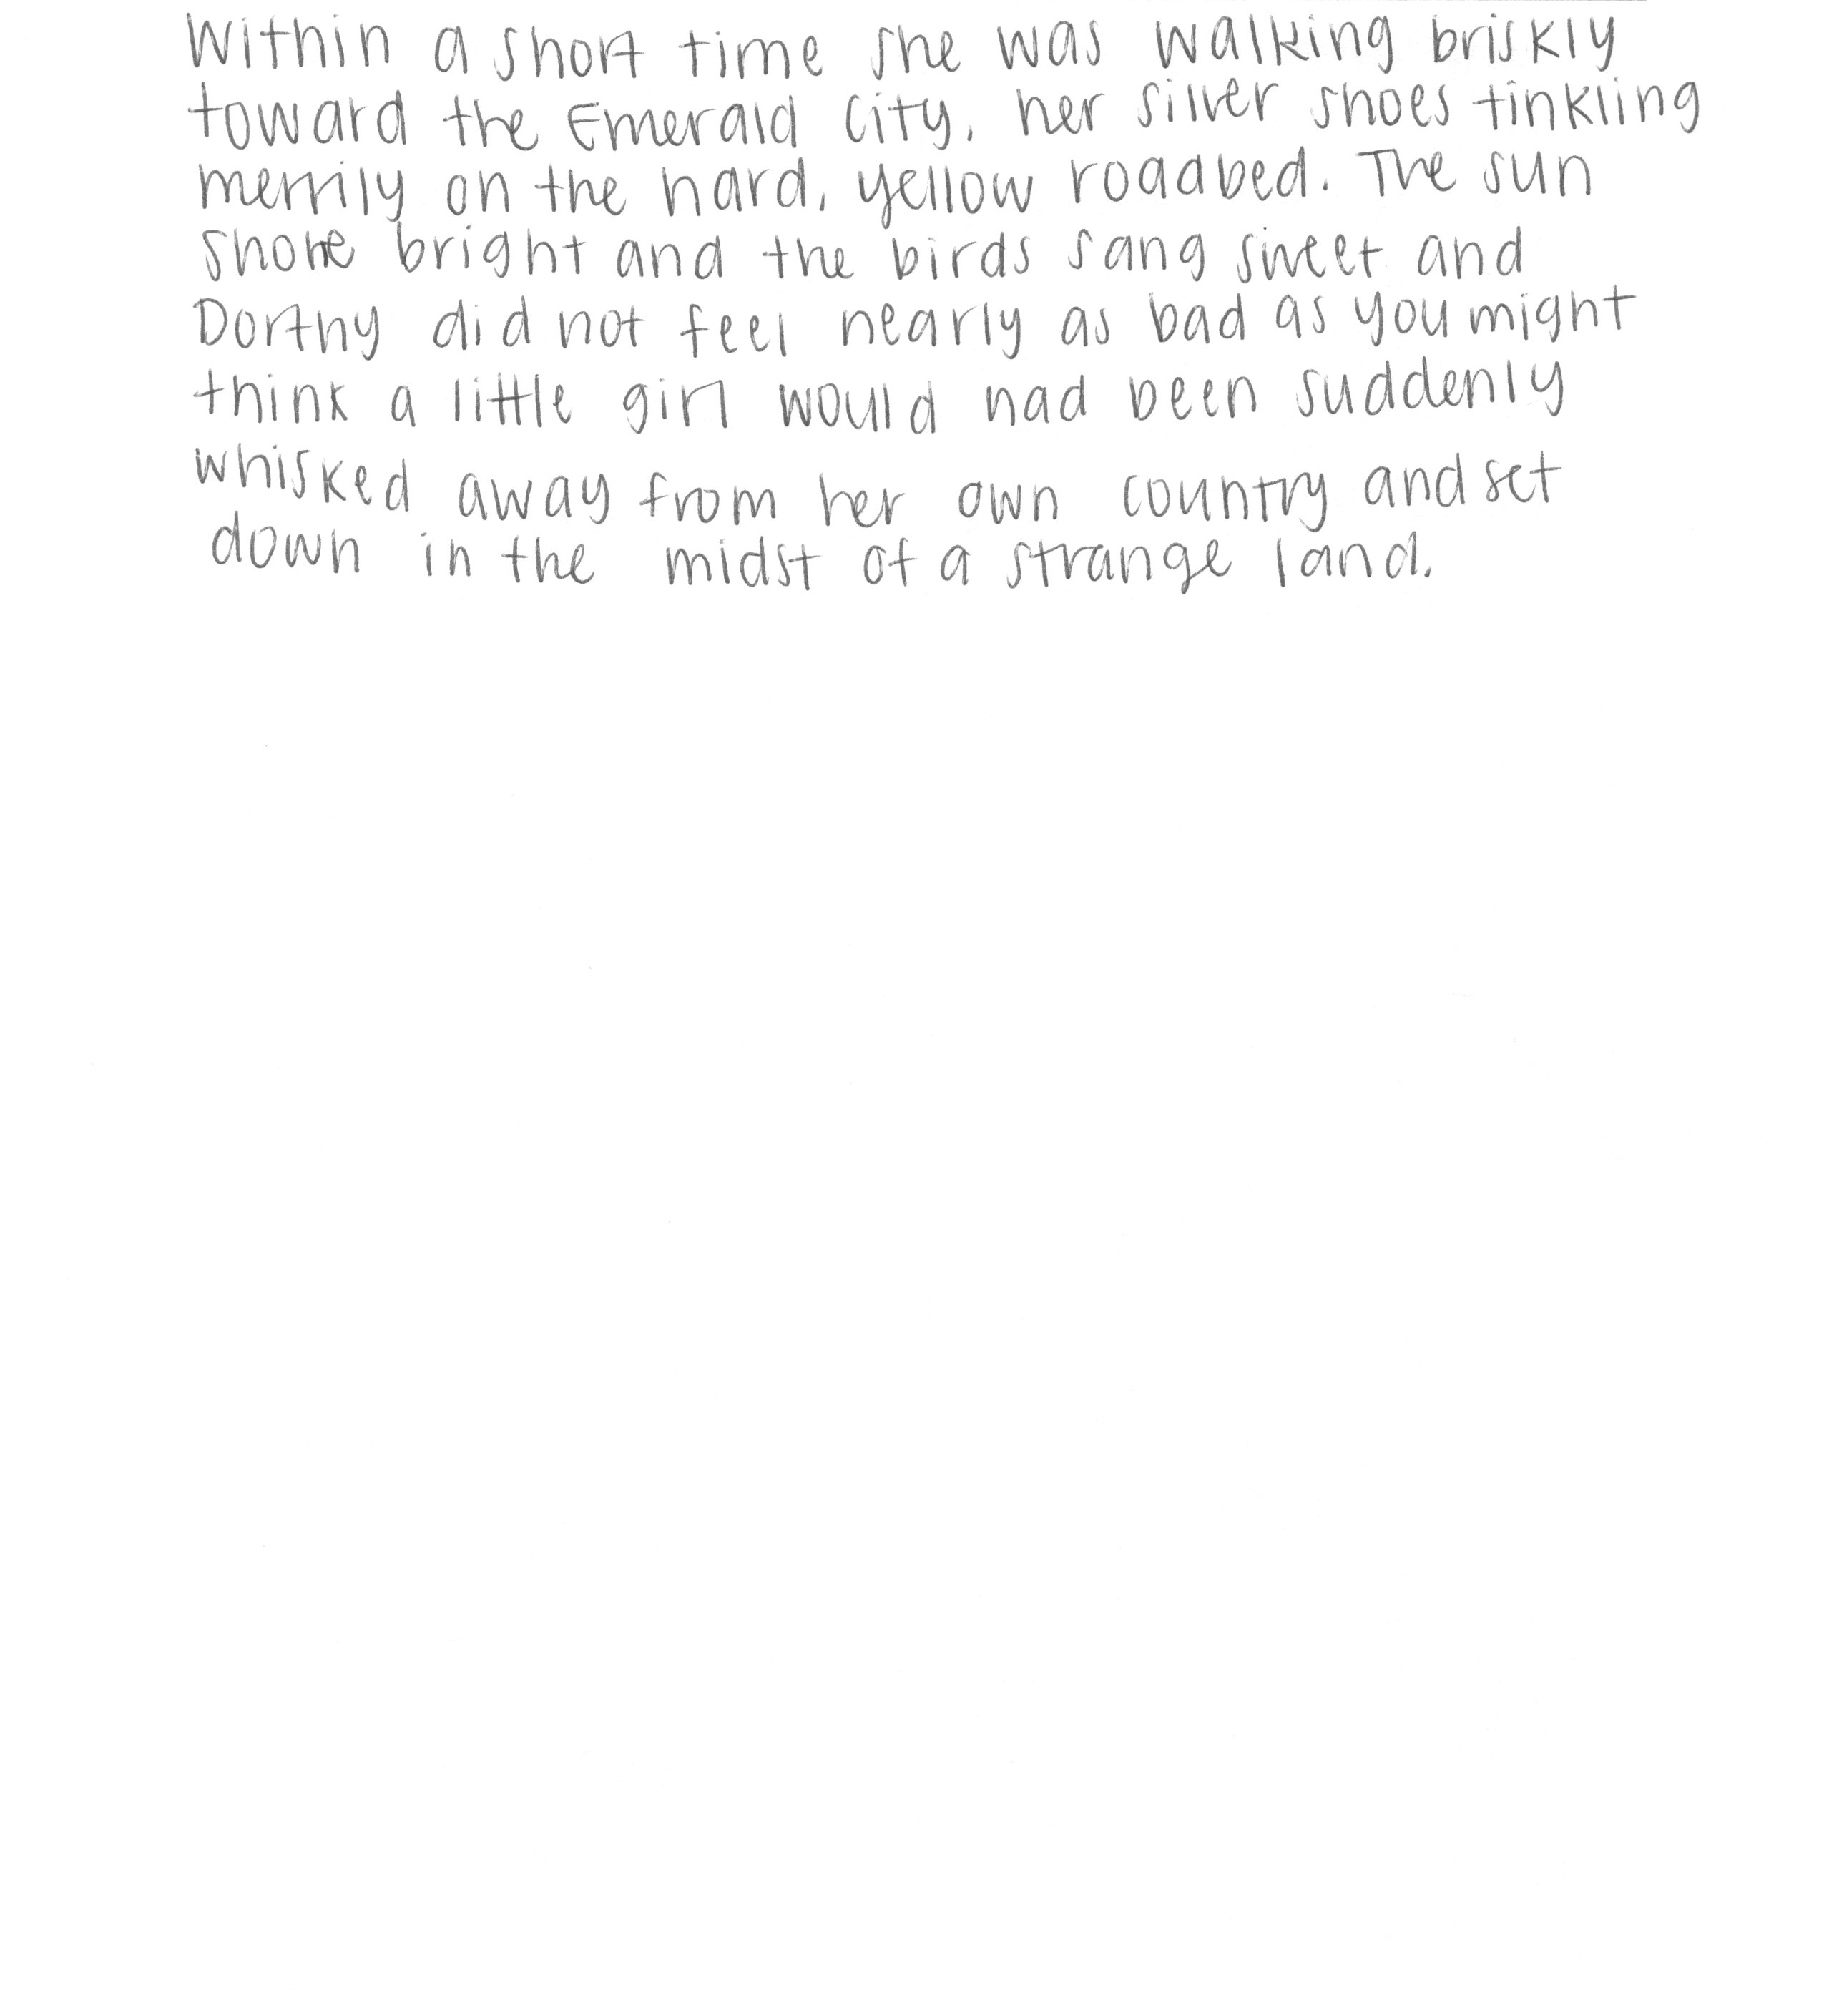 Within a short time she was walking briskly
toward the Emerald City, her silver shoes tinkling
merrily on the hard, yellow roadbed. The sun
shone bright and the birds sang sweet and
Dorthy did not feel nearly as bad as you might
think a little girl would had been suddenly
whisked away from her own country and set
down in the midst of a strange land.